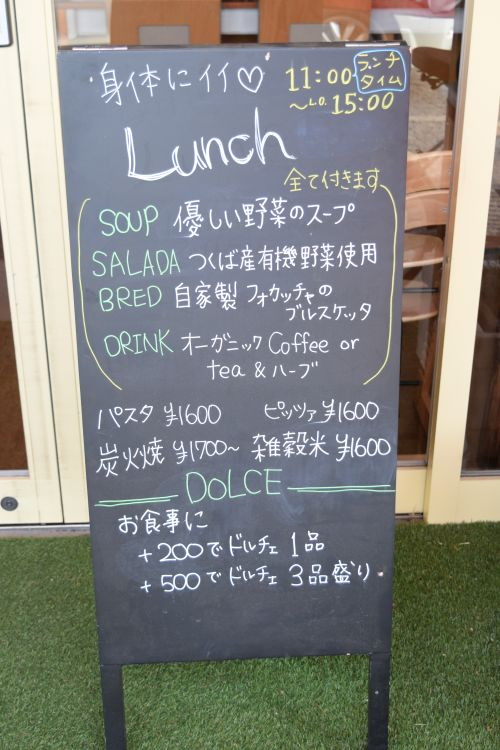 身体にイイ♡
ランチタイム
11:00
～L.O. 15:00
Lunch
全て付きます
SOUP 優しい野菜のスープ
SALADA つくば産有機野菜使用
BRED 自家製 フォカッチャの
ブルスケッタ
DRINK オーガニック Coffee or
tea & ハーブ
パスタ ¥1600 ピッツァ ¥1600
炭火焼 ¥1700～ 雑穀米 ¥1600
DOLCE
お食事に
+200でドルチェ 1品
+500でドルチェ 3品盛り